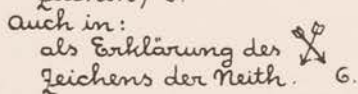 auch in:
als Erklärung des
Zeichens der Neith. 6.